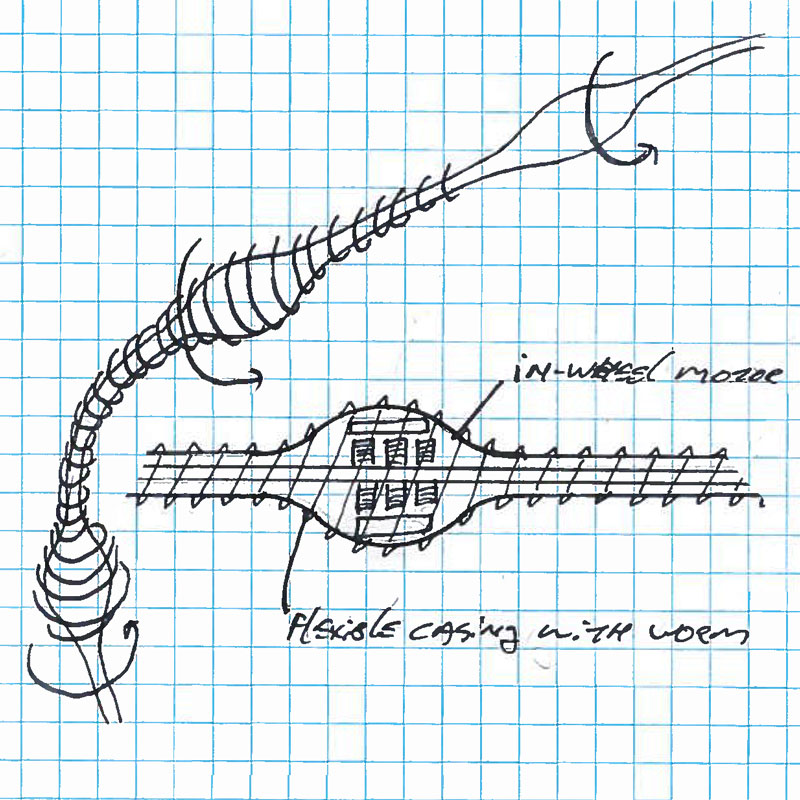 in-wheel motor
flexible casing with worm